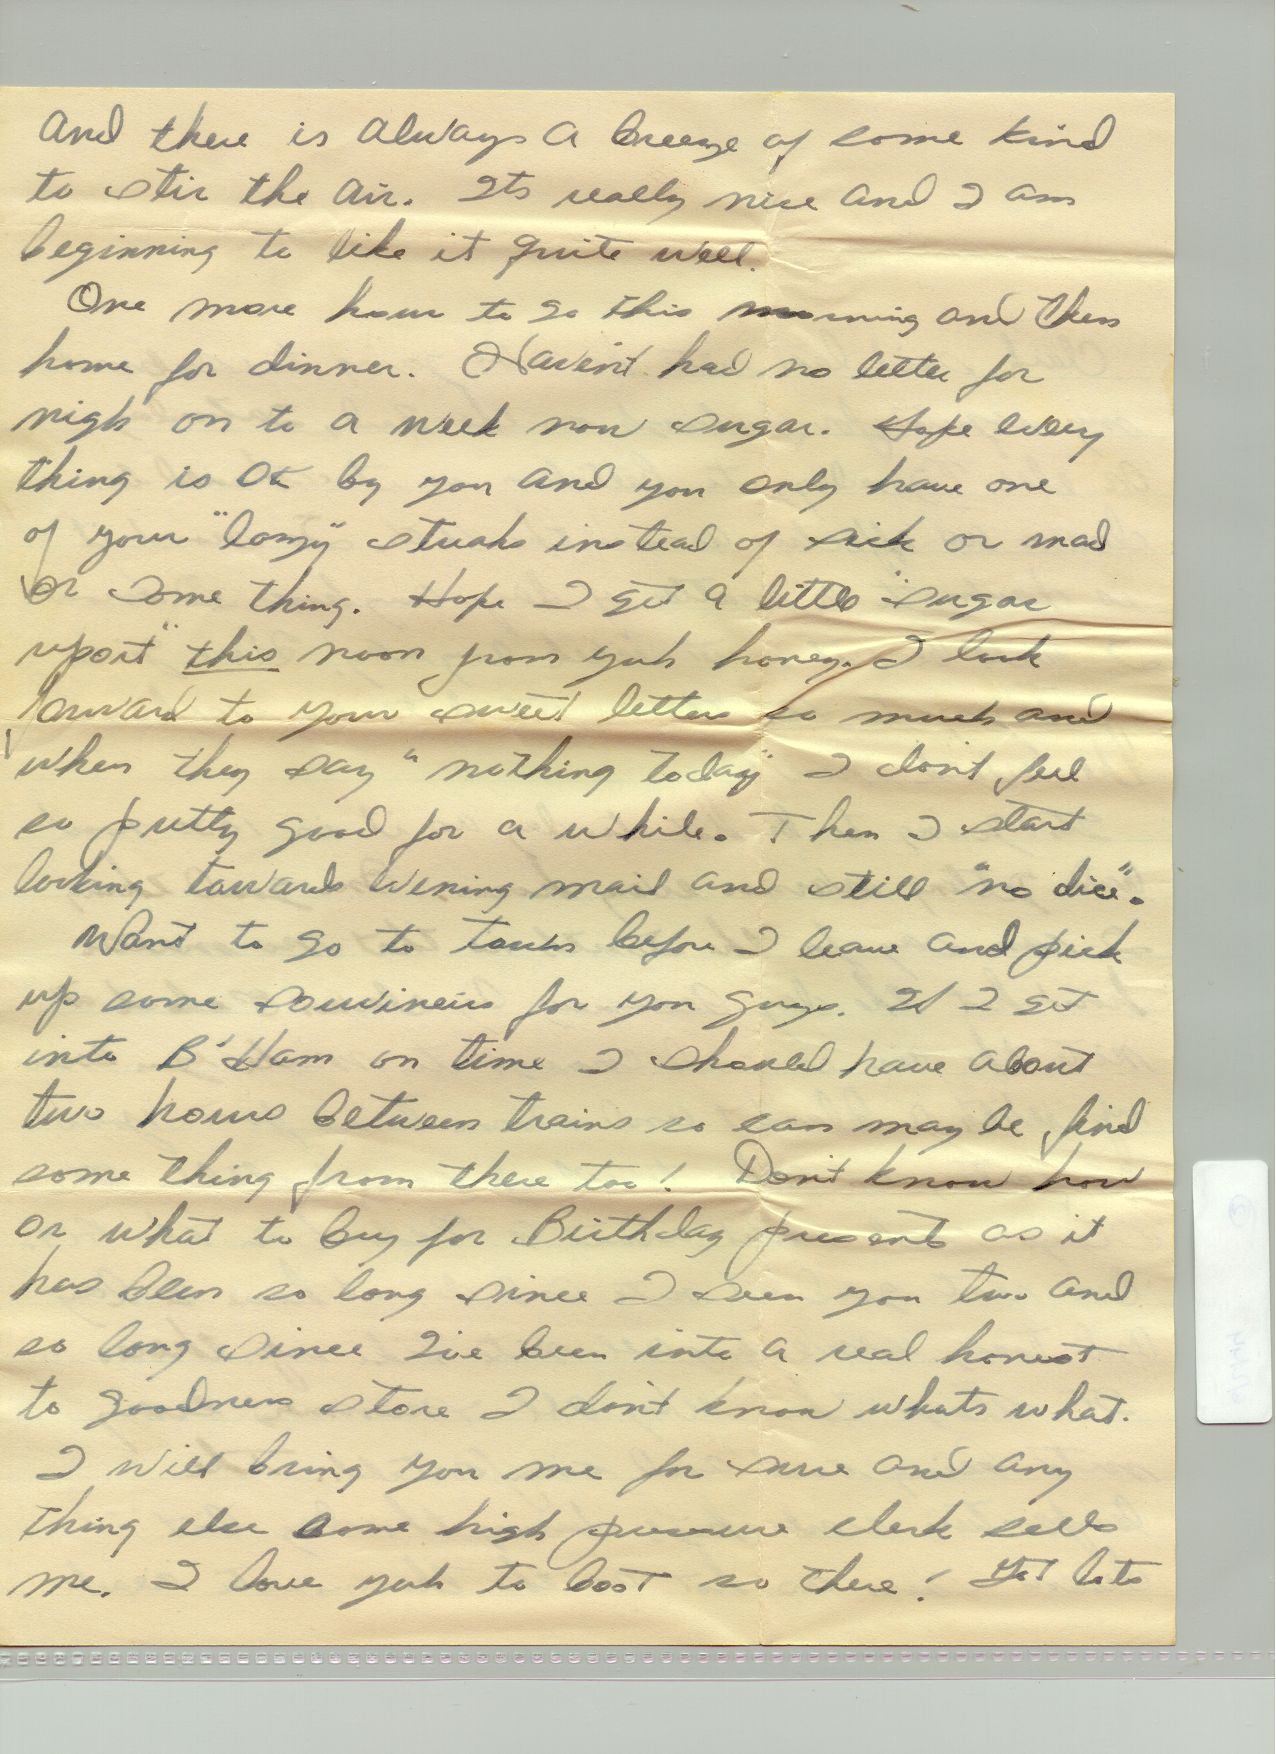 And there is always a breeze of some kind
to stir the air. Its really nice and I am
beginning to like it quite well.
One more hour to go this morning and then
home for dinner. Haven't had no letter for
nigh on to a week now sugar. Hope every
thing is OK by you and you only have one
of your "lazy" streaks instead of sick or mad
or some thing. Hope I get a little "sugar
report" this noon from yuh honey. I look
forward to your sweet letters so much and
when they say "nothing today" I don't feel
so putty good for a while. Then I start
looking towards evening mail and still "no dice".
Want to go to town before I leave and pick
up some souvineirs for you guys. If I get
into B'Ham on time I should have about
two hours between trains so can may be find
some thing from there too! Don't know how
or what to buy for Birthday presents as it
has been so long since I seen you two and
so long since I've been into a real honest
to goodness store I don't know whats what.
I will bring you me for sure and any
thing else some high pressure clerk sells
me. I love yuh to boot so there! Get lots